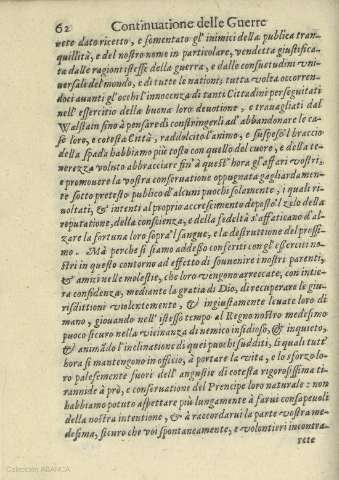 62 Continuatione delle Guerre
uete dato ricetto, e fomentato gl'inimici della publica tran-
quillità, e del nostro nome in particolare, vendetta giustifica-
ta dalle ragioni istesse della guerra, e dalle consuetudini vni-
uersali del mondo, e di tutte le nationi; tutta volta occorren-
doci auanti gl'occhi l'innocenza di tanti Cittadini perseguitati
nell'essercitio della buona loro deuotione, e trauagliati dal
Walstain sino à pensare di constringerli ad'abbandonare le ca-
se loro, e cotesta Città, raddolcito l'animo, e suspeso'l braccio
della spada habbiamo più tosto con quello del cuore, e della te-
nerezza voluto abbracciare fin'à quest'hora gl'affari vostri,
e promouere la vostra conseruatione oppugnata gagliardamen-
te sotto pretesto publico d'alcuni puochi solamente, i quali ri-
uoltati, & intenti al proprio accrescimento deposto'l zelo della
reputatione, della conscienza, e della fedeltà s'affaticano d'al-
zare la fortuna loro sopra'l sangue, e la destruttione del prossi-
mo. Mà perche si siamo addesso conferiti con gl'esserciti no-
stri in questo contorno ad effetto di souuenire i nostri parenti,
& amici nelle molestie, che loro vengono arreccate, con intie-
ra confidenza, mediante la gratia di Dio, di recuperare le giu-
risdittioni violentemente, & ingiustamente leuate loro di
mano, giouando nell'istesso tempo al Regno nostro medesimo
puoco sicuro nella vicinanza di nemico insidioso, & inquieto,
& animando l'inclinatione di quei puochi sudditi, li quali tutt'
hora si mantengono in officio, à portare la vita, e lo sforzo lo-
ro palesemente fuori dell'angustie di cotesta rigorosissima ti-
rannide à prò, e conseruatione del Principe loro naturale: non
habbiamo potuto aspettare più lungamente à farui consapeuoli
della nostra intentione, & à raccordarui la parte vostra me-
desima, sicuro che voi spontaneamente, e volontieri incontra-
rete
Colección ABANCA